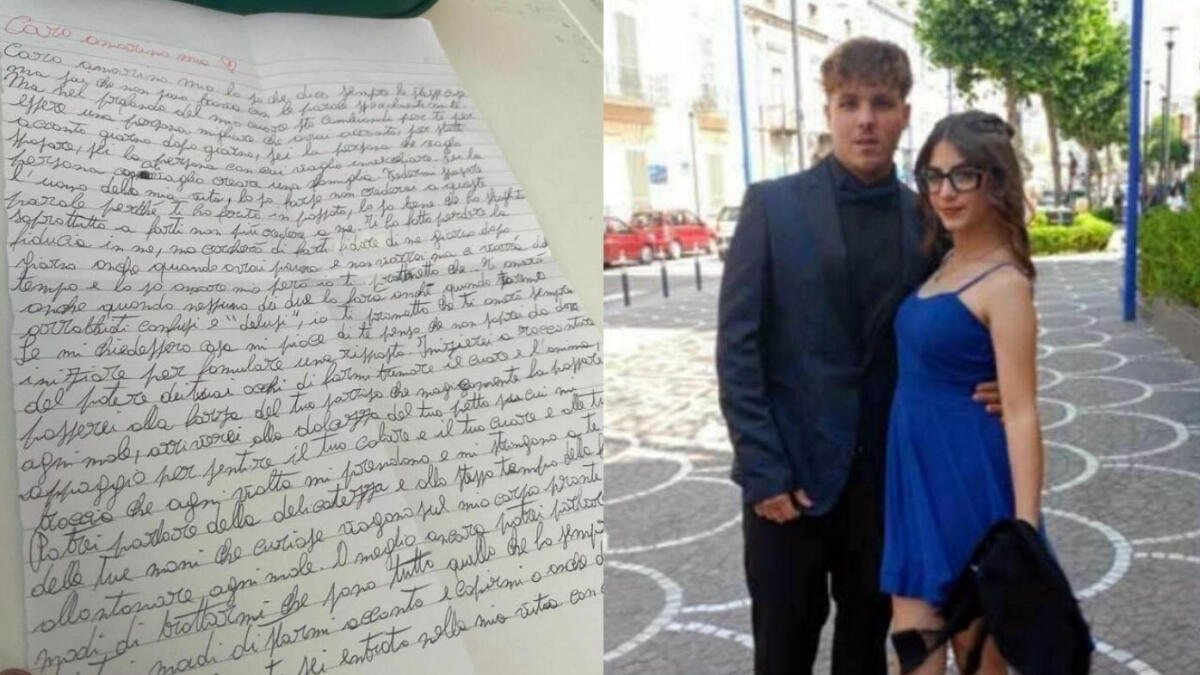 Caro amorino mio
Caro amorino mio lo so che dico sempre le stesse cose
ma sai che non sono brava con le parole specialmente con te
Ma nel profondo del mio cuore sto cambiando per te per
essere una persona migliore che avrai accanto, per starti
accanto giorno dopo giorno, sei la persona che voglio
sposare, sei la persona con cui voglio invecchiare. Sei la
persona con voglio creare una famiglia.
l'uomo della mia vita, lo so forse non crederai a queste
parole perché ti ho ferito in passato, lo so bene che ho sbagliato
soprattutto a farti non più credere a me, ti ho fatto perdere la
fiducia in me, ma cercherò di farti fidare di me giorno dopo
giorno anche quando avrai paura e non vorrai ma ci vorrà del
tempo e lo so amore mio però io ti prometto che ti amerò
anche quando nessuno di due lo farà anche quando saremo
arrabbiati confusi e "delusi", io ti prometto che ti amerò sempre
Se mi chiedessero cosa mi piace di te penso che non saprei da dove
iniziare per formulare una risposta. Inizierei a raccontare
del potere dei tuoi occhi di farmi tremare il cuore e l'anima,
passerei alla forza del tuo sorriso che magicamente fa sparire
ogni male, arriverei alla dolcezza del tuo petto su cui mi
appoggio per sentire il tuo calore e il tuo cuore e alle tue
braccia che ogni volta mi prendono e mi stringono a te
Potrei parlare della delicatezza e allo stesso tempo della
delle tue mani che curiose vagano sul mio corpo pronte
allontanare ogni male. O meglio ancora potrei parlare
modi di trattarmi che sono tutto quello che ho sempre
modi di starmi accanto e capirmi o anche
sei entrato nella mia vita con